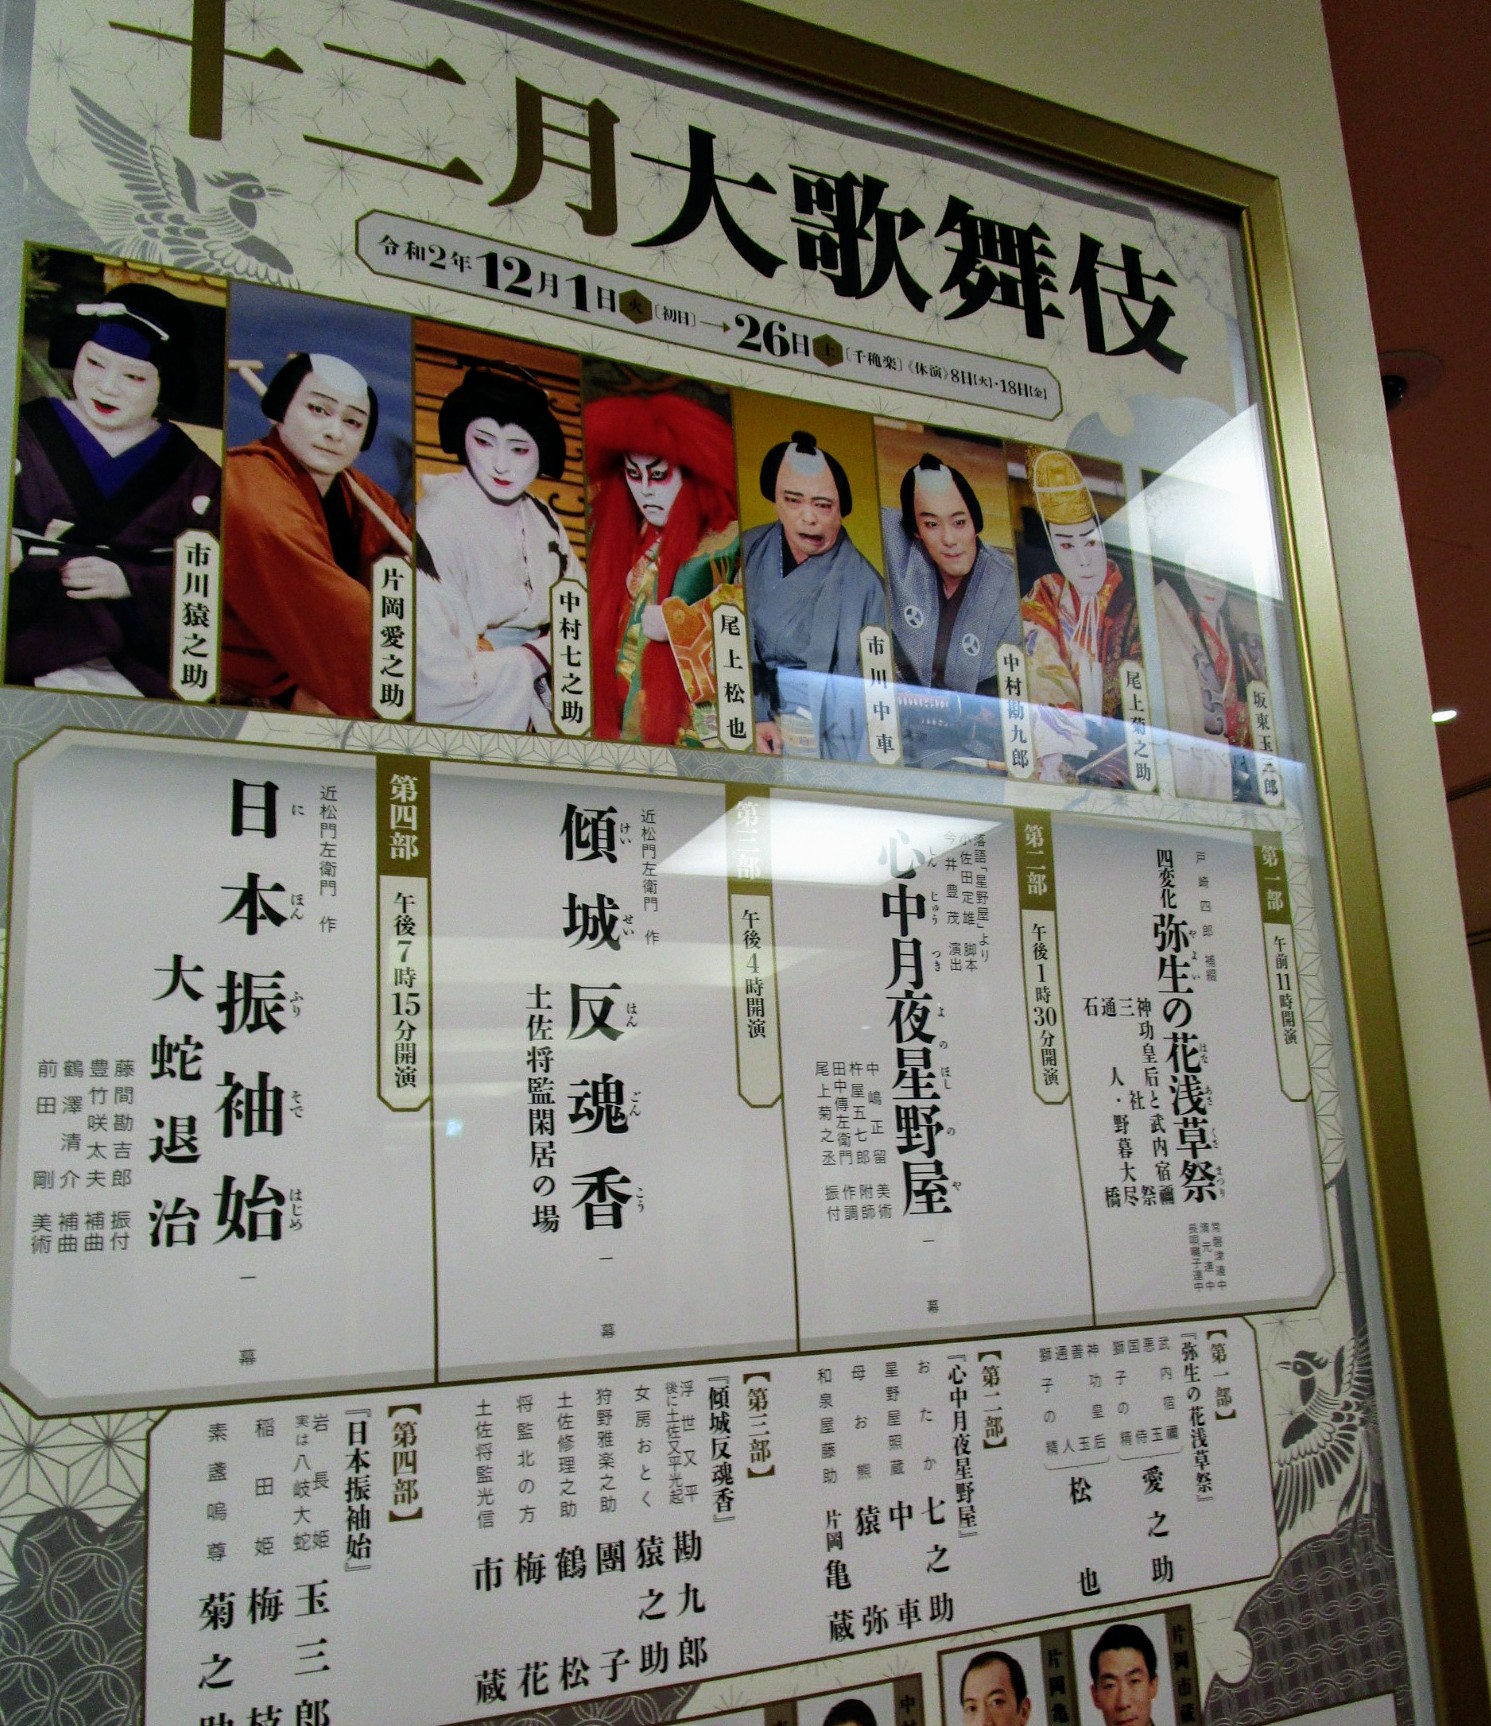 十二月大歌舞伎
令和2年12月1日火〔初日〕→26日土〔千穐楽〕《休演》8日[火]・18日[金]
坂東玉三郎
尾上菊之助
中村勘九郎
市川中車
尾上松也
中村七之助
片岡愛之助
市川猿之助
第一部
午前11時開演
戸崎四郎 補綴
四変化 弥生の花浅草祭
やよい はな あさくさ まつり
神功皇后と武内宿禰
三社祭
通人・野暮大尽
石橋
常磐津連中
清元連中
長唄囃子連中
第二部
午後1時30分開演
落語「星野屋」より
小佐田定雄 脚本
今井豊茂 演出
心中月夜星野屋
しんじゅう つき よ の ほし の や
一幕
中嶋正留 美術
杵屋五七郎 附師
田中傳左衛門 作調
尾上菊之丞 振付
第三部
午後4時開演
近松門左衛門 作
傾城反魂香
けい せい はん ごん こう
一幕
土佐将監閑居の場
第四部
午後7時15分開演
近松門左衛門 作
日本振袖始
に ほん ふり そで はじめ
一幕
大蛇退治
藤間勘吉郎 振付
豊竹咲太夫 補曲
鶴澤清介 補曲
前田剛 美術
【第一部】
『弥生の花浅草祭』
武内宿禰
悪玉
国侍
獅子の精
愛之助
神功皇后
善玉
通人
獅子の精
松也
【第二部】
『心中月夜星野屋』
おたか 七之助
星野屋照蔵 中車
母お熊 猿弥
和泉屋藤助 片岡亀蔵
【第三部】
『傾城反魂香』
浮世又平
後に土佐又平光起 勘九郎
女房おとく 猿之助
狩野雅楽之助 團子
土佐修理之助 鶴松
将監北の方 梅花
土佐将監光信 市蔵
【第四部】
『日本振袖始』
岩長姫
実は八岐大蛇 玉三郎
稲田姫 梅枝
素盞嗚尊 菊之助
片岡市蔵
片岡亀
中村